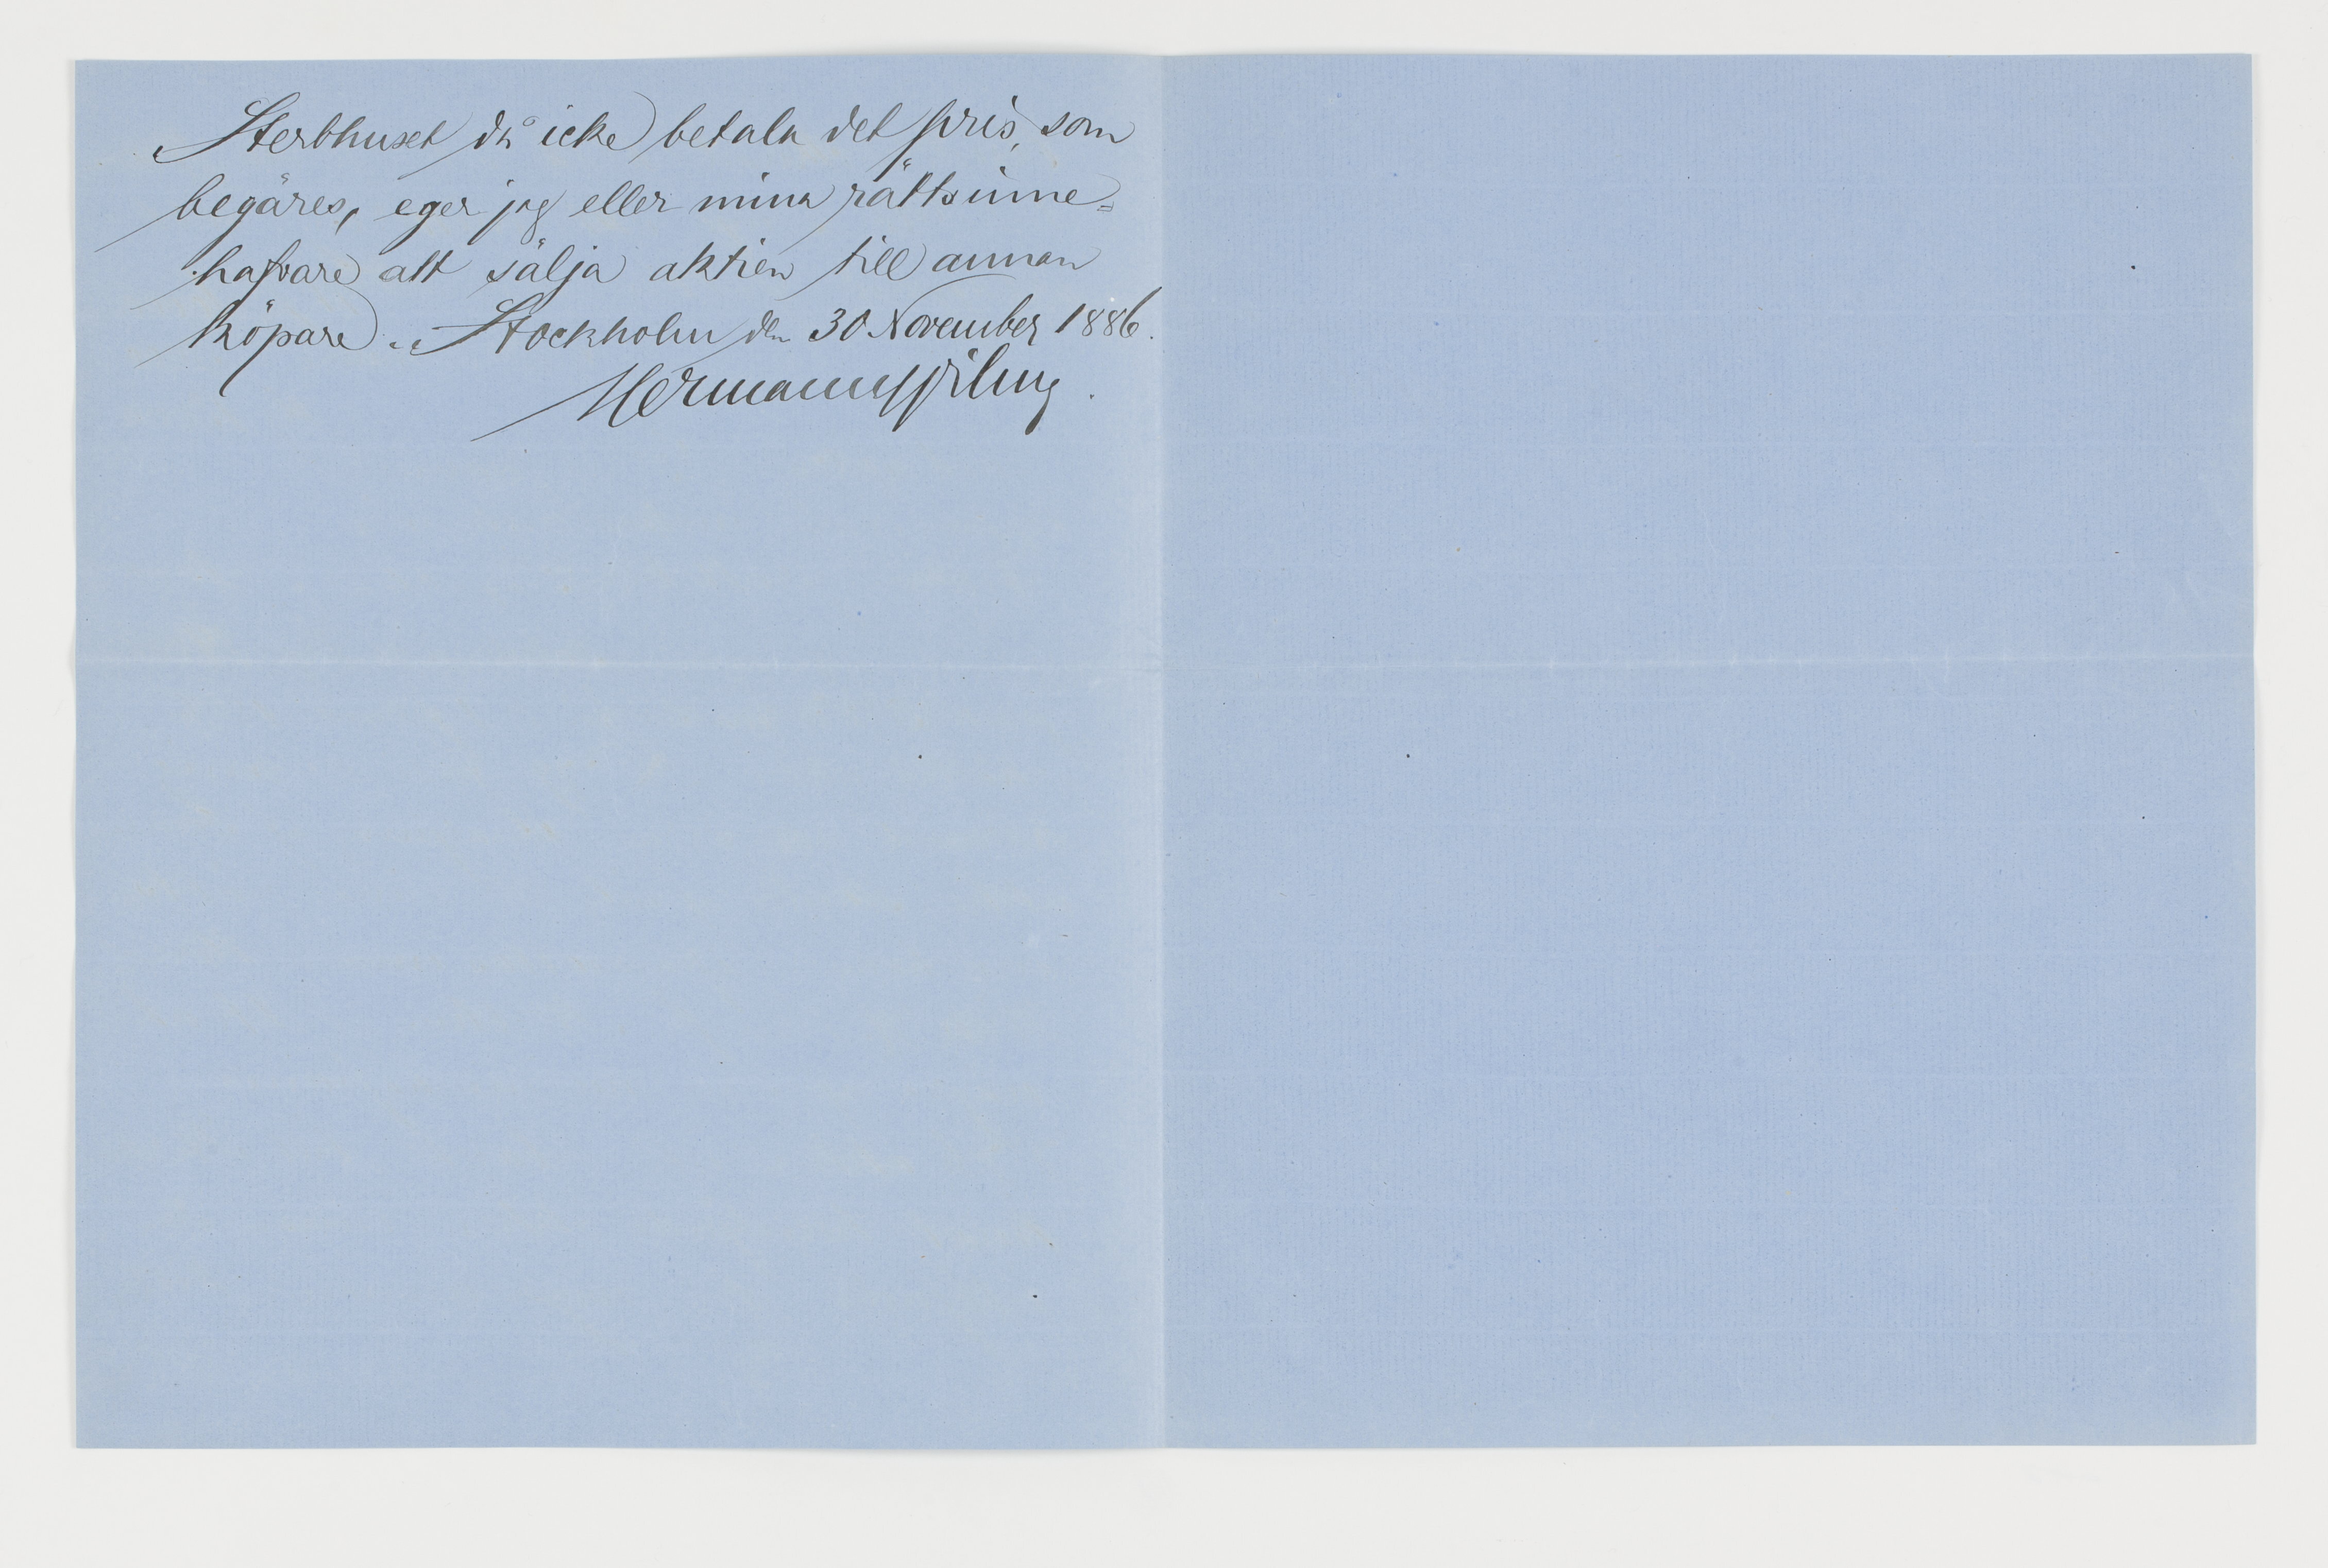 Sterbhuset då icke betala det pris, som
begäres, eger jag eller mina rättsinne=
hafvare att sälja aktien till annan
köpare. Stockholm den 30 November 1886.